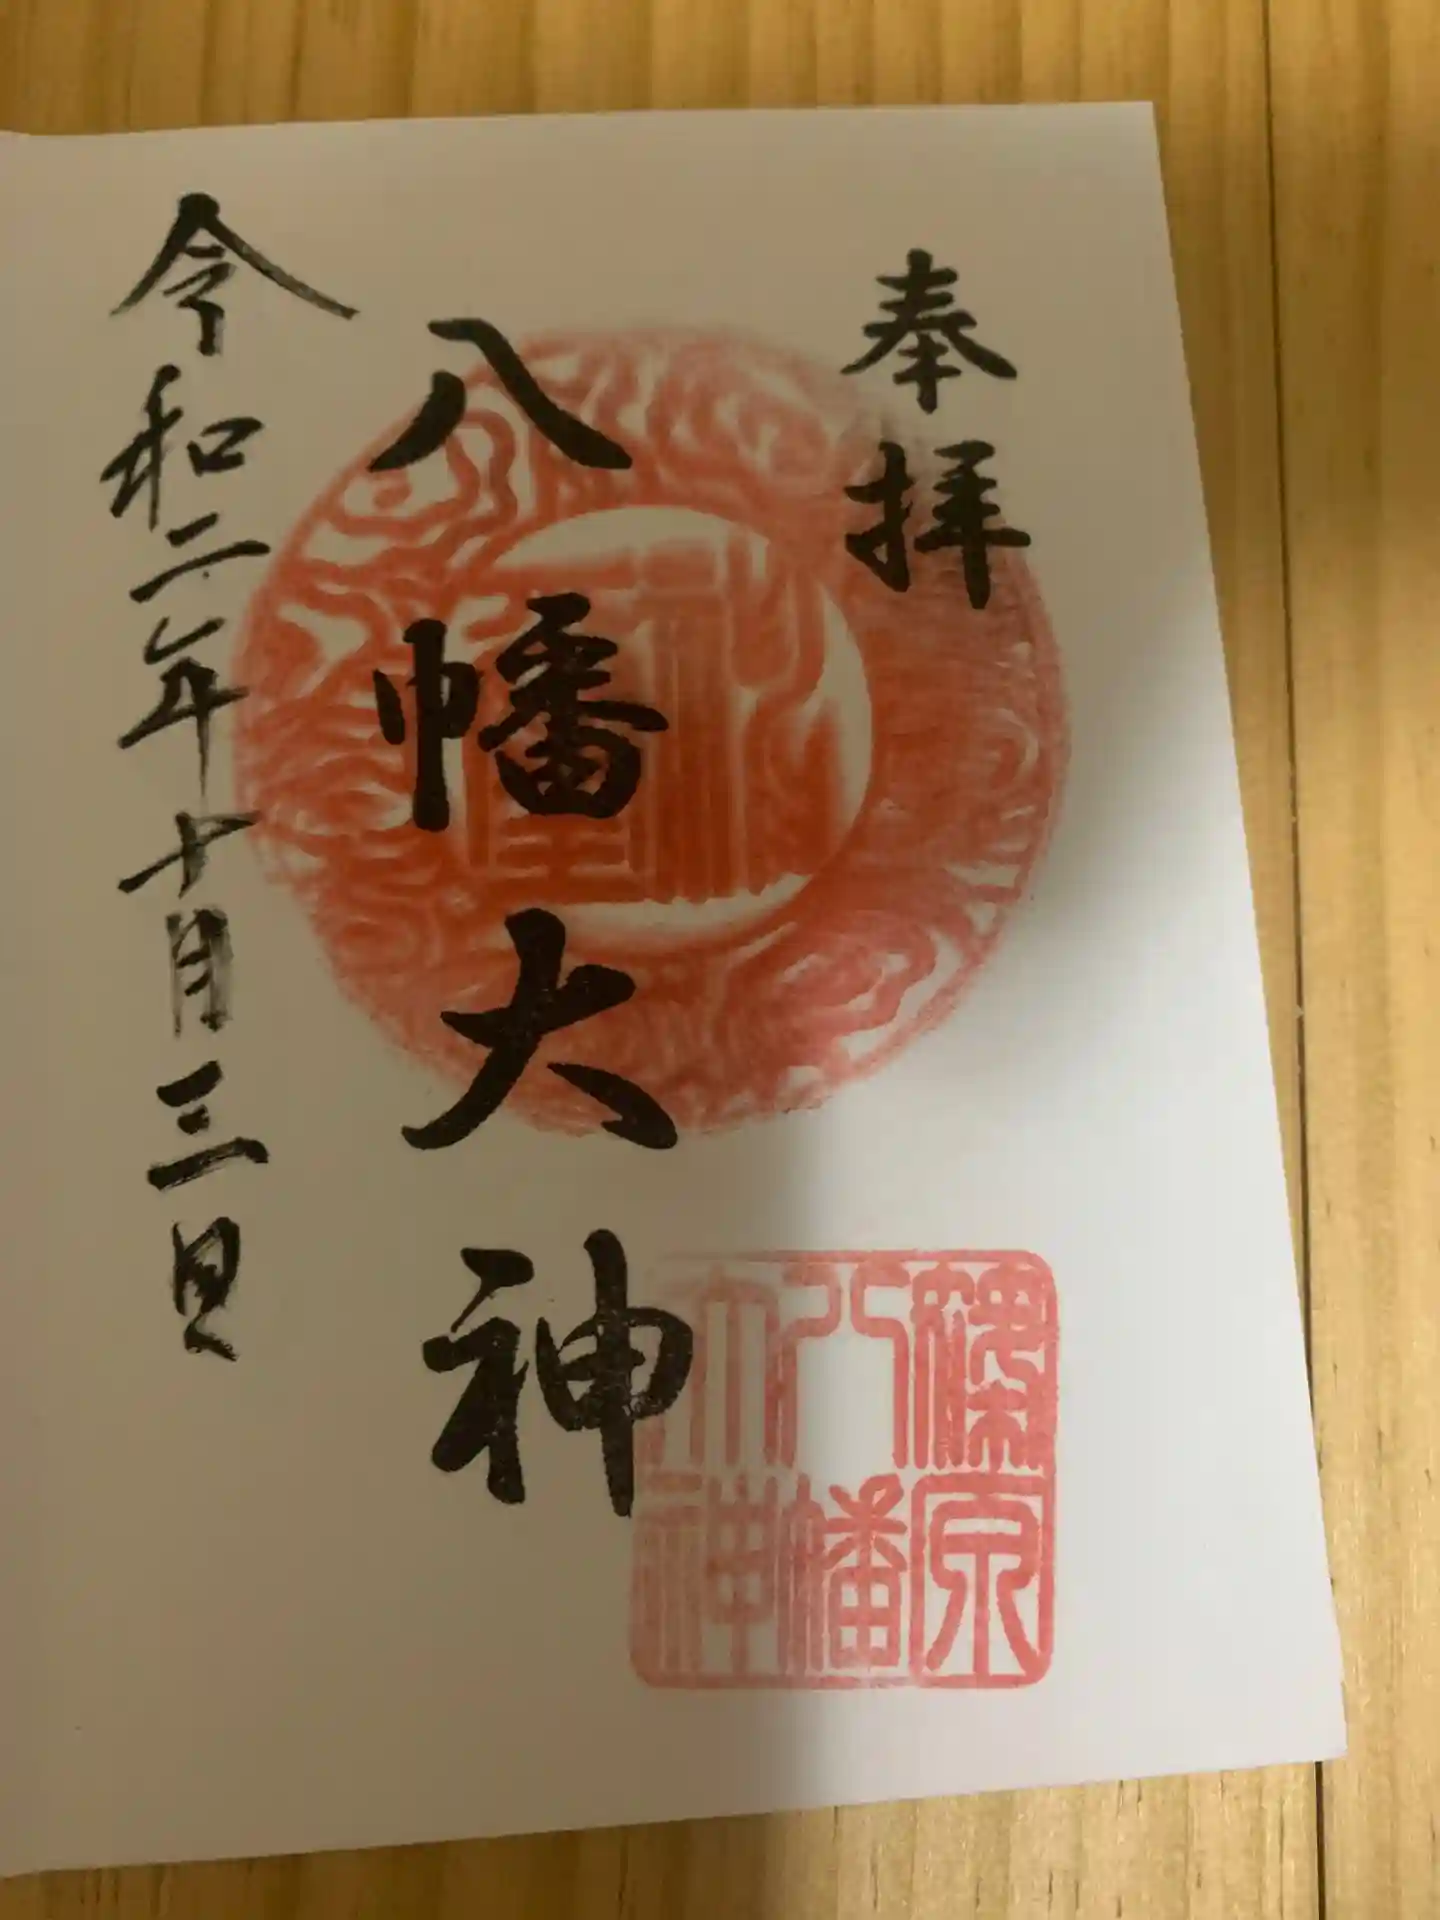 奉拝
八幡大神
令和二年十月三日
八幡
大神